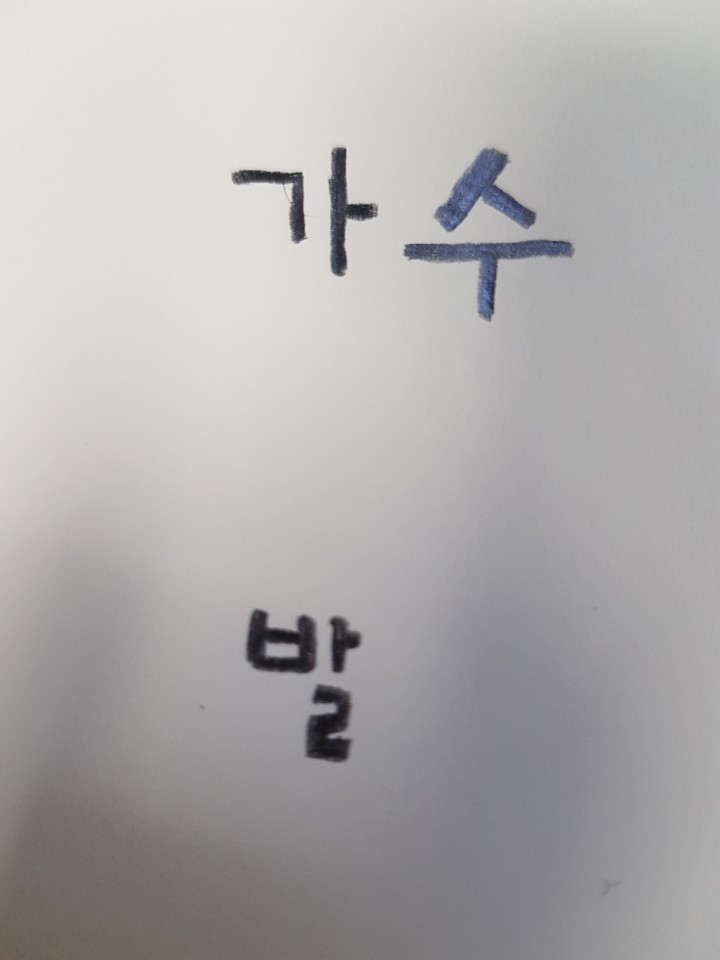 가수
발